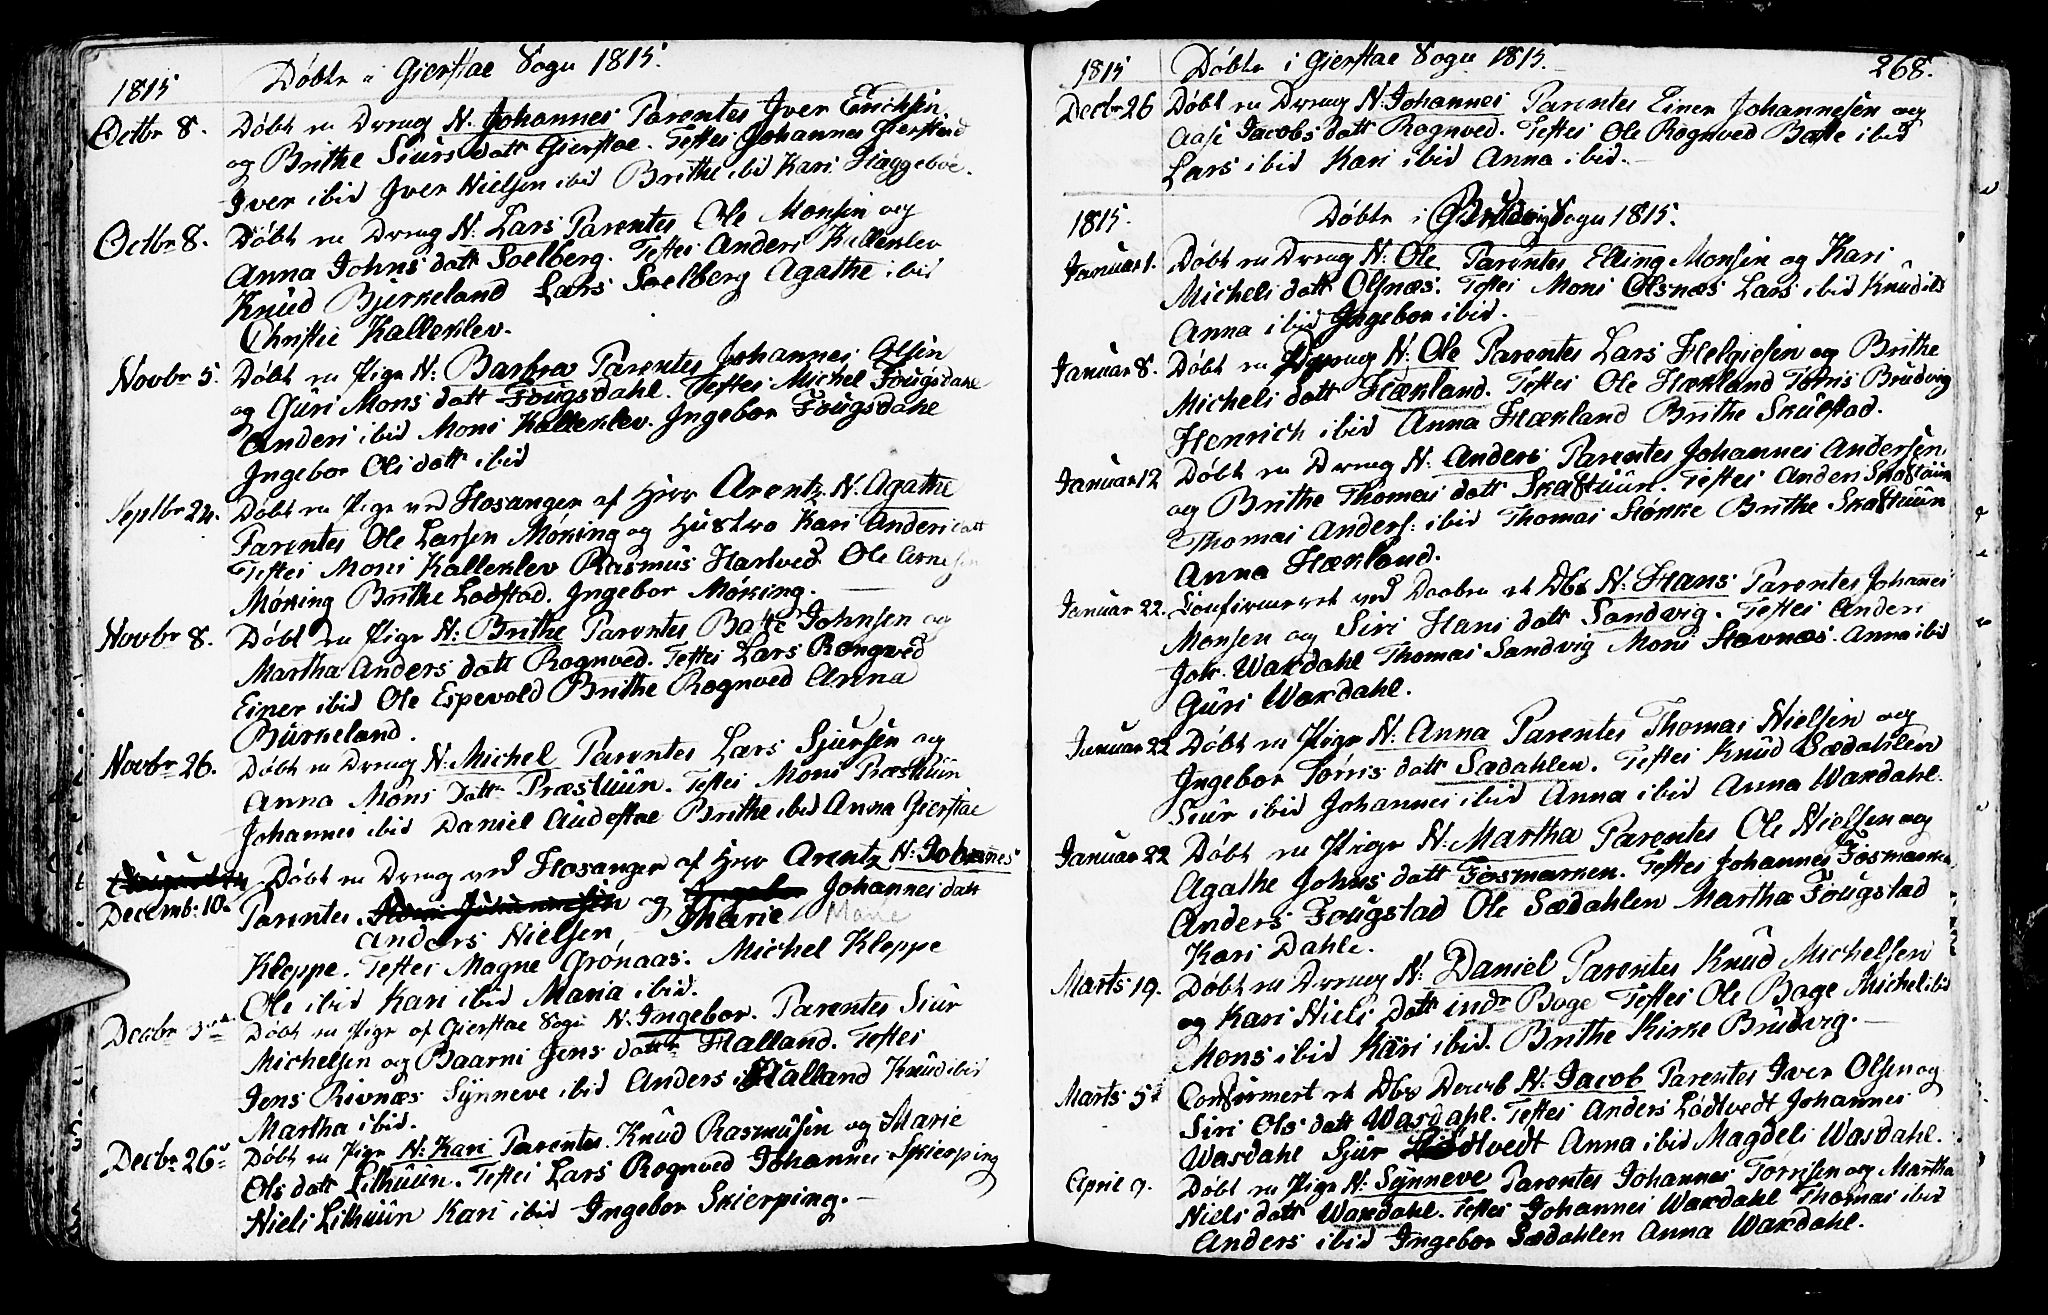 1815 Døbte i Gierstae Sogn 1815.
Octbr 8. Døbt en Dreng N. Johannes Parentes Iver Erichsen
og Brithe Siurs datt Gierstae. Testes Johannes Gierstad
Iver ibid Iver Nielsen ibid Brithe ibid Kari Haggeboe.
Octbr 8. Døbt en Dreng N. Lars Parentes Ole Monsen og
Anna Johns datt Soelberg. Testes Anders Kalleklev
Knud Bjerkeland Lars Soelberg Agathe ibid
Christie Kalleklev.
Novbr 5. Døbt en Pige N: Barbra Parentes Johannes Olsen
og Gûri Mons datt Fougsdahl. Testes Michel Fougsdahl
Anders ibid Mons Kalleklev. Ingebor Fougsdahl
Ingebor Ols datt ibid
Septbr 24. Døbt en Pige ved Hosanger af Herr Arentz N. Agathe
Parentes Ole Larsen Møking og Hustro Kari Anders datt
Testes Mons Kalleklev Rasmus Hartved Ole Arnesen
Møking Brithe Lodstad. Ingebor Møking.
Novbr 8. Døbt en Pige N: Brithe Parentes Baste Johnsen og
Martha Anders datt Rognved. Testes Lars Rongved
Einer ibid Ole Espevold Brithe Rognved Anna
Bûrkeland.
Novbr 26. Døbt en Dreng N. Michel Parentes Lars Sjursen og
Anna Mons datt Præstuün. Testes Mons Præstuün
Johannes ibid Daniel Aûdestae Brithe ibid Anna Gierstae
Døbt en Dreng ved Hosanger af Herr Arentz N: Johannes
Decemb: 10. Parentes og Johannes datt
Anders Nielsen Marie Marie
Kleppe. Testes Magne Grønaas. Michel Kleppe
Ole ibid Kari ibid Maria ibid.
Decbr 3 Døbt en Pige af Gierstae Sogn N. Ingebor. Parentes Siur
Michelsen og Baarni Jens datt Halland. Testes
Jens Rivnæs Synneve ibid Anders Halland Knûd ibid
Martha ibid.
Decbr 26 Døbt en Pige N: Kari Parentes. Knûd Rasmûsen og Marie
Ols datt Lithuün. Testes Lars Rognved Johannes Skierping
Niels Lithuün Kari ibid Ingebor Skierping.
1815 Døbte i Gierstae Sogn 1815. 268.
Decbr 26 Døbt en Dreng N. Johannes Parentes Einer Johannesen og
Aase Jacobs datt Rognved. Testes Ole Rognved Baste ibid
Lars ibid Kari ibid Anna ibid.
1815. Døbte i Brudvig Sogn 1815.
Januar 1. Døbt en Dreng N: Ole Parentes Elling Monsen og Kari
Michels datt Olsnæs. Testes Mons Olsnæs Lars ibid Knûd ib
Anna ibid Ingebor ibid.
Januar 8. Døbt en Dreng N: Ole Parentes Lars Helgiesen og Brithe
Michels datt Hækland. Testes Ole Hækland Tørris Brûdvig
Henrich ibid Anna Hækland Brithe Skûlstad.
Januar 12 Døbt en Dreng N. Anders Parentes Johannes Andersen
og Brithe Thomas datt Skaftuün Testes Anders Skaftuün
Thomas Anders: ibid Thomas Størke Brithe Skaftuün
Anna Hækland.
Januar 22. Confirmeret ved Daaben et Db: N: Hans Parentes Johannes
Monsen og Siri Hans datt Sandvig. Testes Anders
Joh. Waxdahl Thomas Sandvig Mons Stavnæs. Anna ibid
Gûri Waxdahl.
Januar 22 Døbt en Pige N. Anna Parentes Thomas Nielsen og
Ingebor Tørris datt Sædahlen. Testes Knûd Sædahlen
Siur ibid Johannes ibid Anna ibid Anna Waxdahl.
Januar 22 Døbt en Pige N. Martha Parentes Ole Nielsen og
Agathe Johns datt Fosmarken. Testes Johannes Fosmarken
Anders Fougstad Ole Sædahlen Martha Fougstad
Kari Dahle.
Marts 19. Døbt en Dreng N. Daniel Parentes Knûd Michelsen
og Kari Niels datt indr Boge Testes Ole Boge Michel ibid
Mons ibid Kari ibid. Brithe Kirke Brûdvig.
Marts 5 Confirmert et Dbs N: Jacob Parentes Iver Olsen og
Siri Ols datt Wasdahl. Testes Anders Lødtvedt Johannes
Wasdahl Sjur Lødtvedt Anna ibid Magdeli Wasdahl.
April 9. Døbt en Pige N: Synneve Parentes Johannes Tørrisen og Martha
Niels datt Waxdahl. Testes Johannes Waxdahl Thomas ibid
Anders ibid Ingebor Sædahlen Anna Waxdahl.